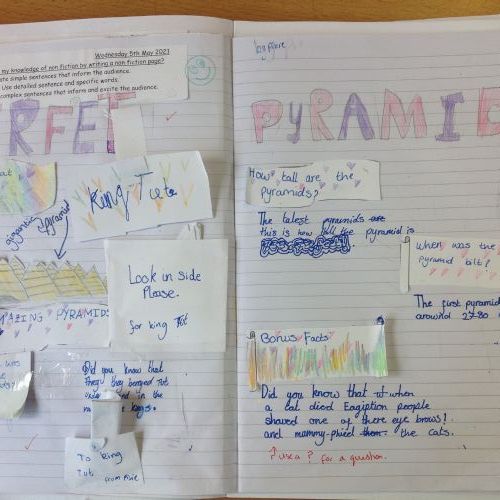 Wednesday 5th May 2021
my knowledge of non fiction by writing a non fiction page?
simple sentences that inform the audience.
Use detailed sentence and specific words.
complex sentences that inform and excite the audience.
RFEE
King Tut
gigantic pyramid
Look in side
Please.
for king Tut
MAZING PYRAMIDS
was
Did you know that
they
in the
To king
Tut from
PYRAMID
How tall are the
pyramids?
The talest pyramids are
this is how tall the pyramid is
When was the
pyramid bilt?
The first pyramid
around 2780
Bonus Facts
Did you know that when
a cat died Eagiption people
shaved one of there eye brows!
and mummy-phied them the cats.
↑ use a ? for a question.